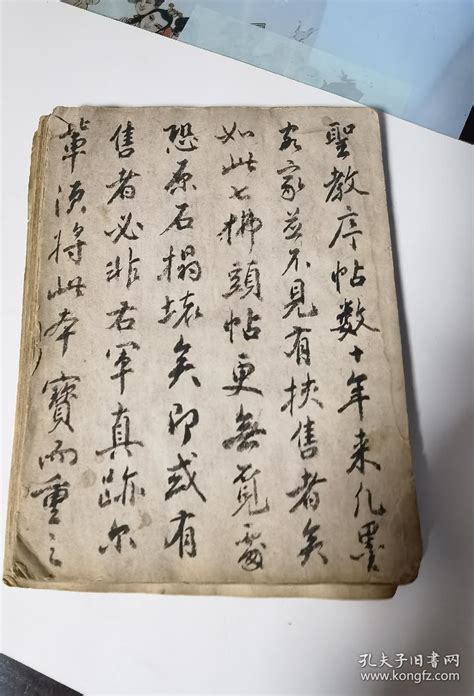 聖教序帖数十年来凡墨
客家並不見有挟售者矣
如此七拂頭帖更無覓處
恐原石搨壊矣即或有
售者必非右軍真跡尔
輩須将此本寶而重之
孔夫子旧书网
www.kongfz.com